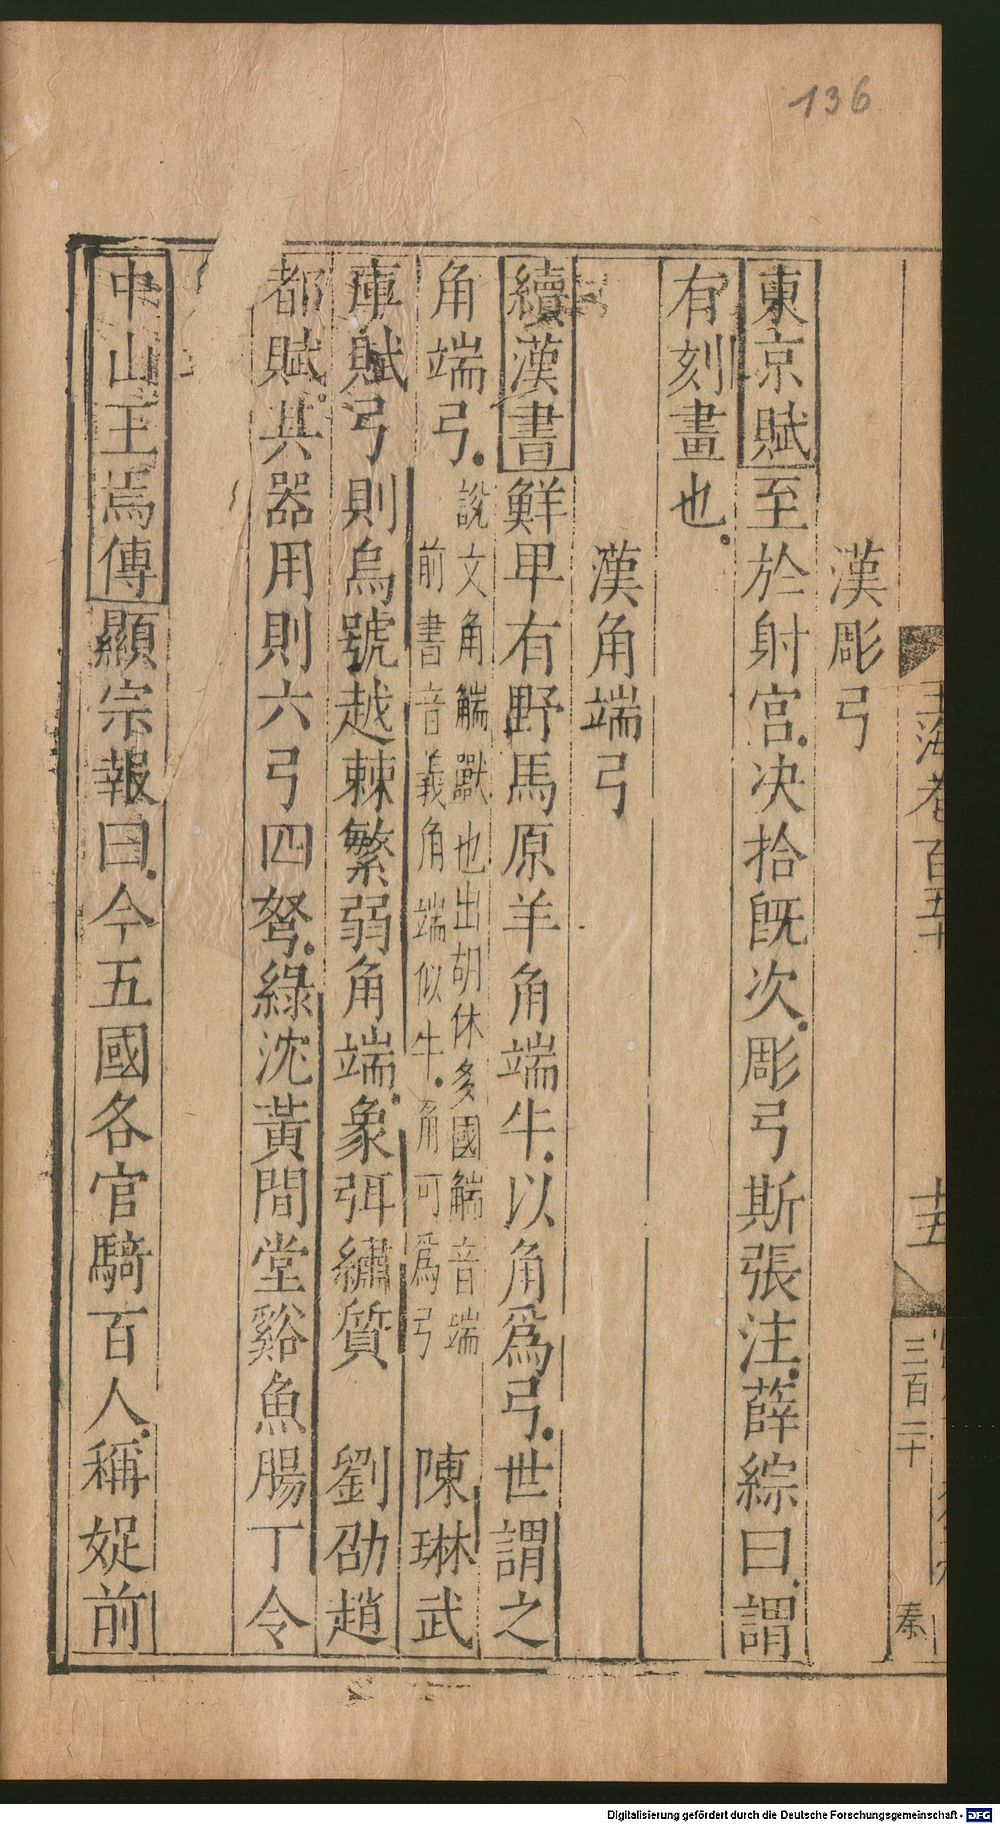 136
玉海卷百五十
十五
三百二十
秦
漢彫弓
東京賦至於射宮决拾旣次彫弓斯張注薛綜曰謂
有刻畫也
漢角端弓
續漢書鮮卑有野馬原羊角端牛以角爲弓世謂之
角端弓
說文角觿獸也出胡休多國觿音端
前書音義角端似牛角可爲弓
陳琳武
庫賦弓則烏號越棘繁弱角端象弭繡質 劉劭趙
都賦其器用則六弓四弩綠沈黃間堂谿魚腸丁令
中山王焉傳顯宗報曰今五國各官騎百人稱娖前
Digitalisierung gefördert durch die Deutsche Forschungsgemeinschaft - DFG